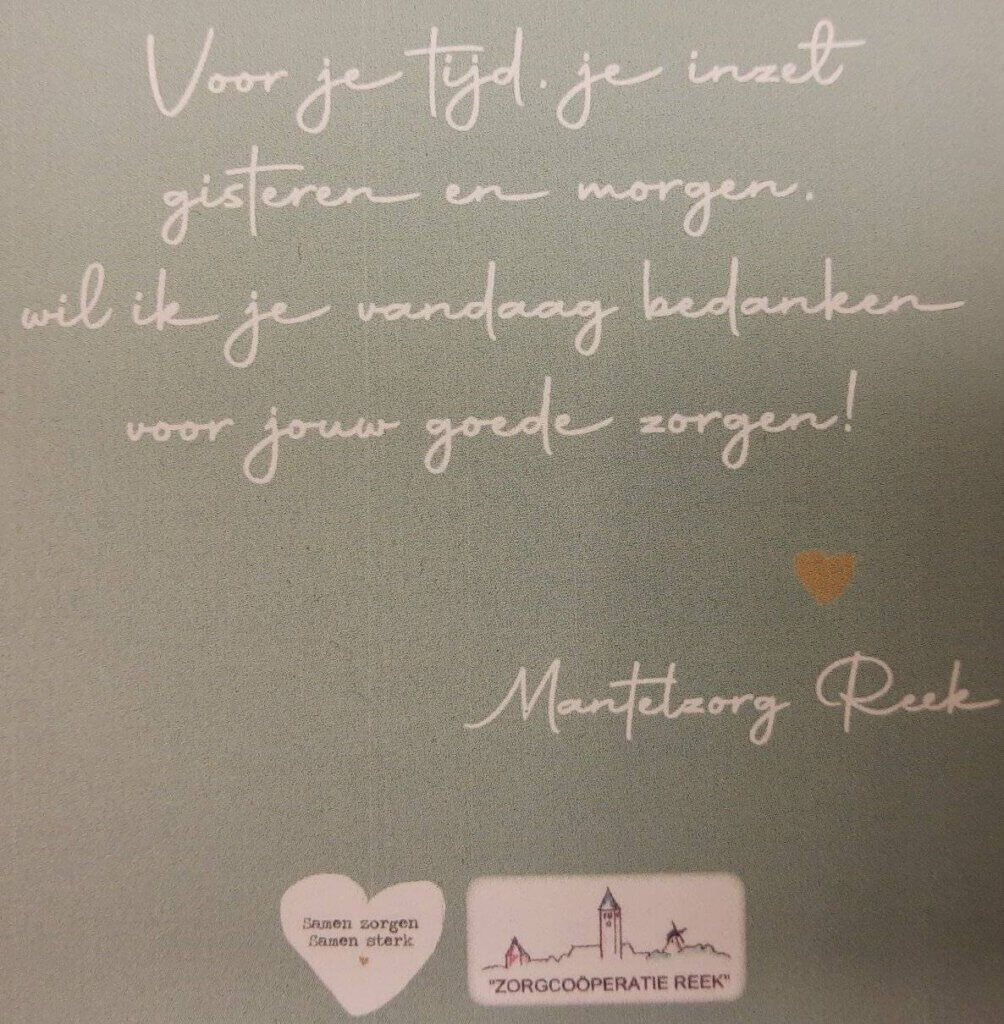 Voor je tijd, je inzet
gisteren en morgen,
wil ik je vandaag bedanken
voor jouw goede zorgen!
Mantelzorg Reek
Samen zorgen
Samen sterk
"ZORGCOÖPERATIE REEK"